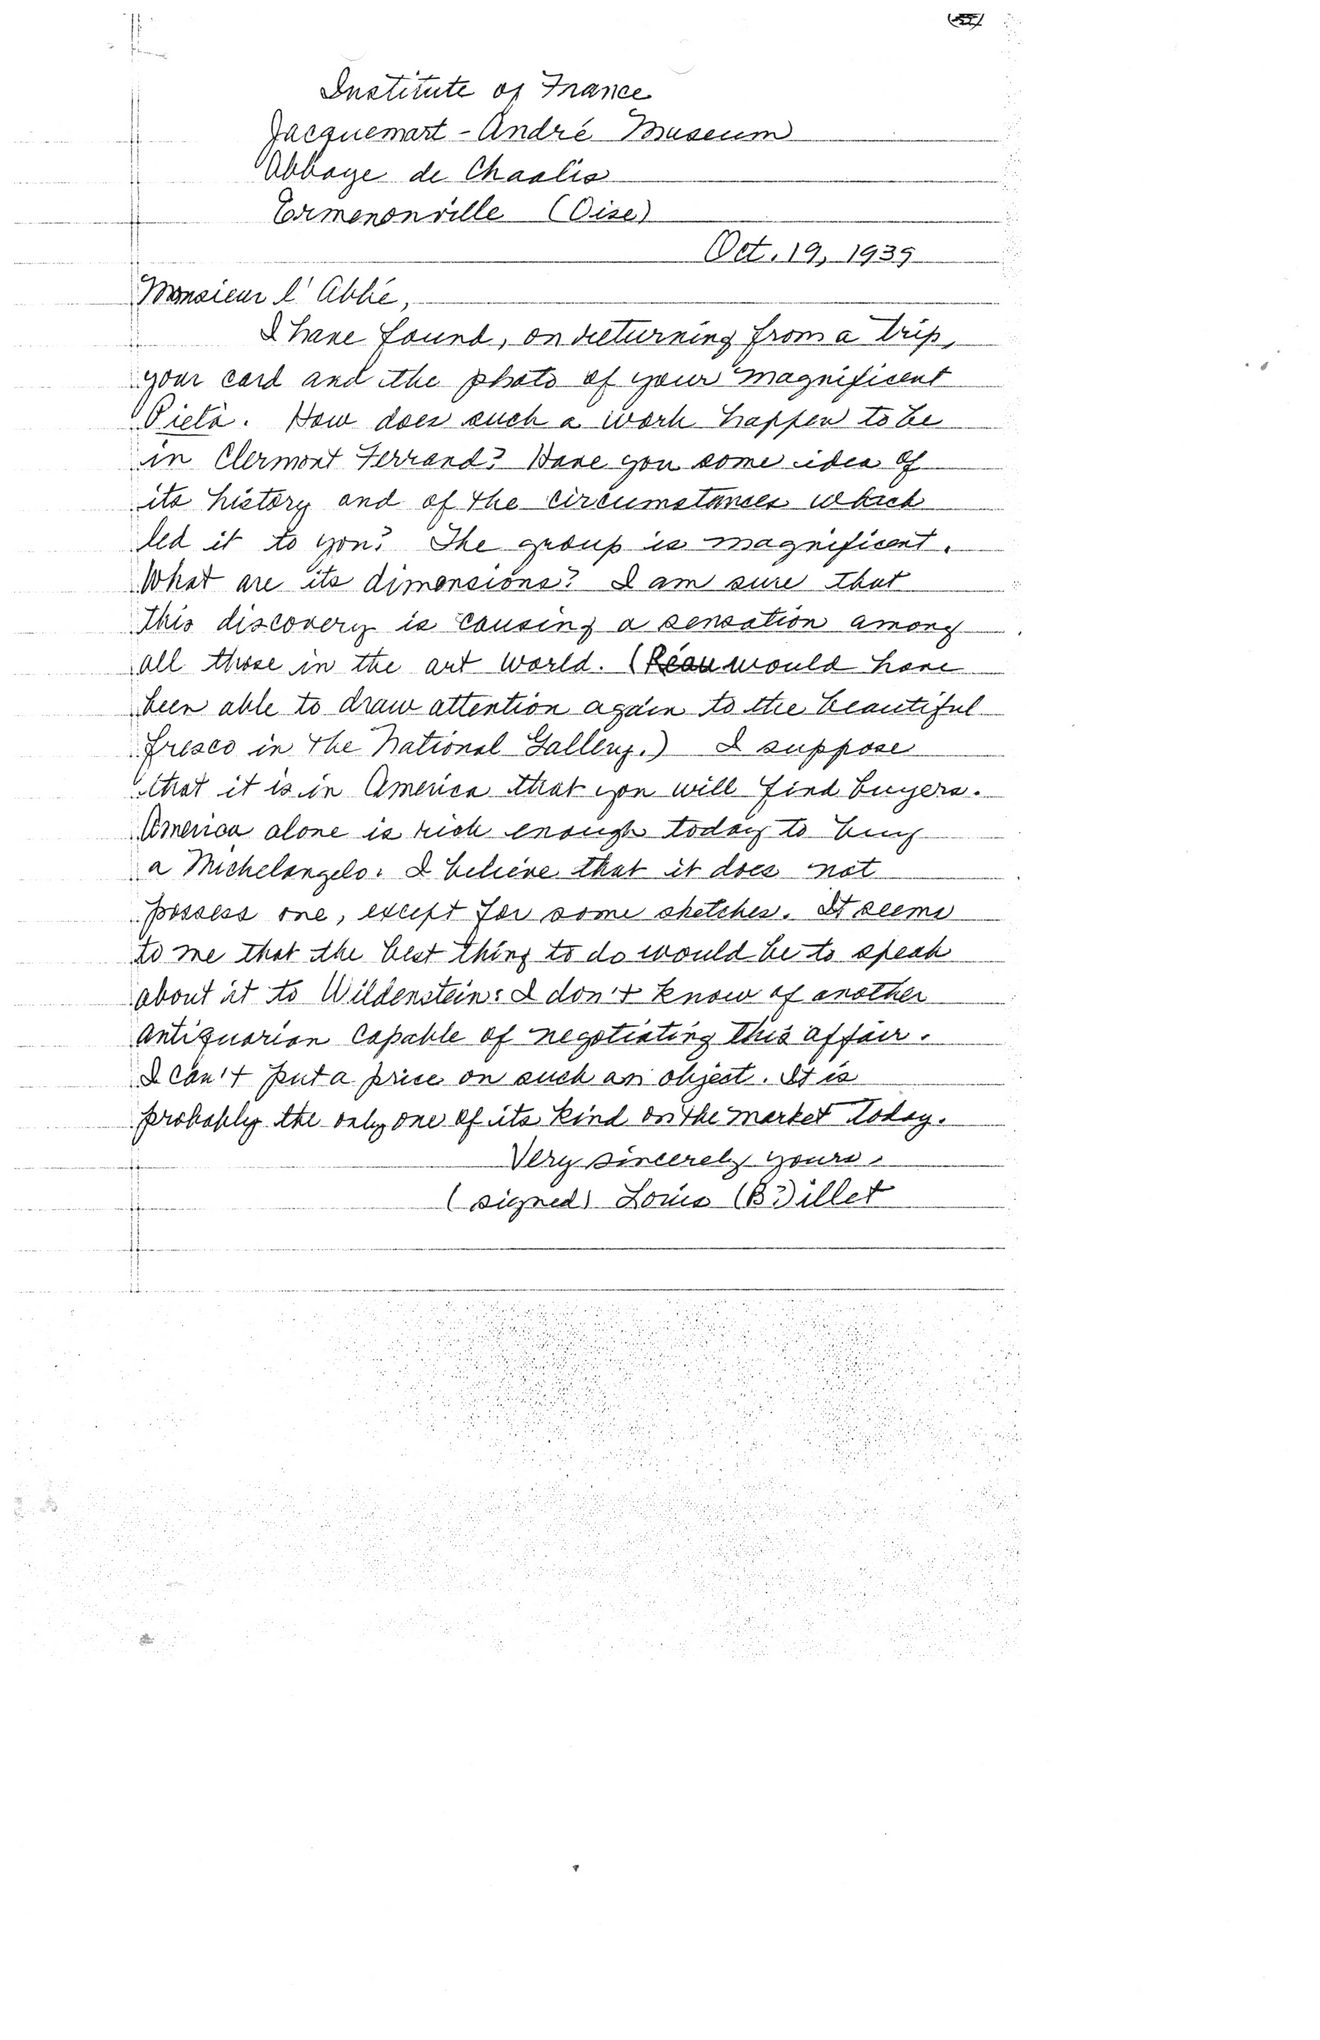 Institute of France
Jacquemart - André Museum
Abbaye de Chaalis
Ermenonville (Oise)
Oct. 19, 1939
Monsieur l'Abbé,
I have found, on returning from a trip,
your card and the photo of your magnificent
Pietà. How does such a work happen to be
in Clermont Ferrand? Have you some idea of
its history and of the circumstances which
led it to you? The group is magnificent.
What are its dimensions? I am sure that
this discovery is causing a sensation among
all those in the art world. (Réau would have
been able to draw attention again to the beautiful
fresco in the National Gallery.) I suppose
that it is in America that you will find buyers.
America alone is rich enough today to buy
a Michelangelo. I believe that it does not
possess one, except for some sketches. It seems
to me that the best thing to do would be to speak
about it to Wildenstein: I don't know of another
antiquarian capable of negotiating this affair.
I can't put a price on such an object. It is
probably the only one of its kind on the market today.
Very sincerely yours,
(signed) Louis (B?)illet